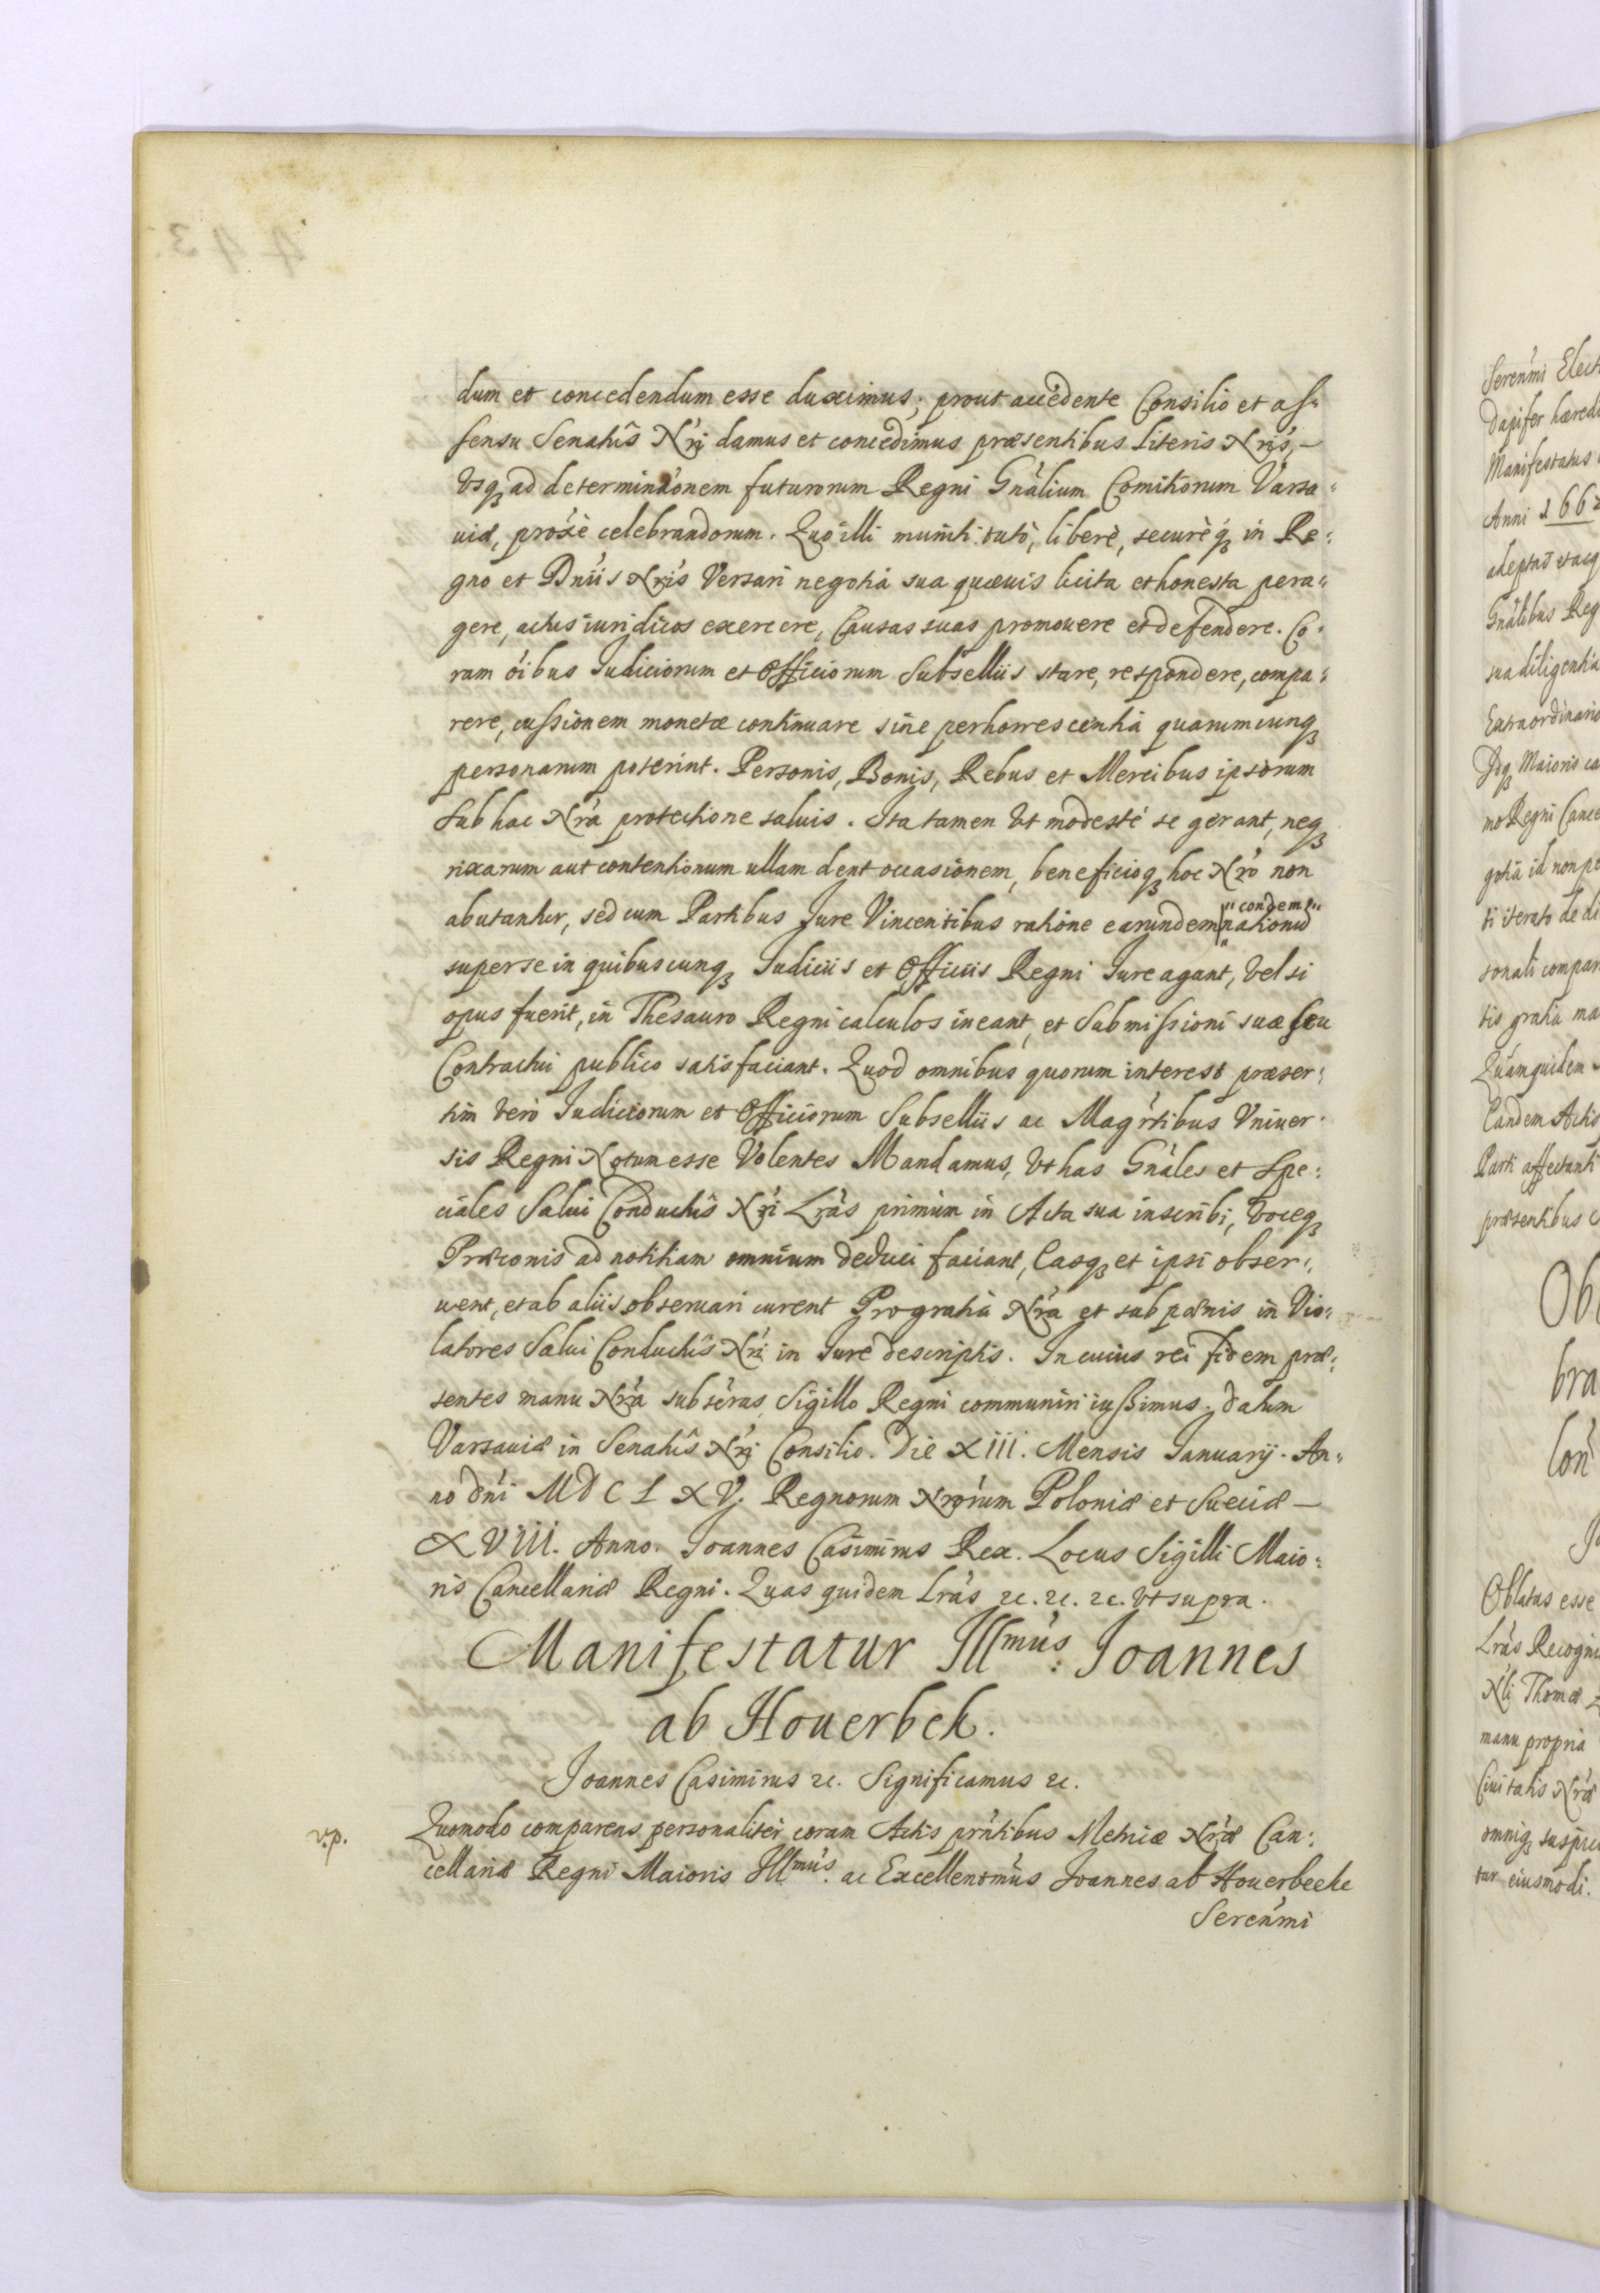 dum et concedendum esse duximus; prout accedente Consilio et as:
sensu Senatûs Nri damus et concedimus præsentibus Literis Nris,
Vsq ad determinãonem futurorum Regni Gnãlium Comitiorum Varsa:
uiæ, proxè celebrandorum. Quo illi muniti tutò, liberè, securèq in Re:
gno et Dniis Nris Versari negotia sua quæuis licita et honesta pera:
gere, actus iuridicos exercere, Causas suas promouere et defendere. Co:
ram oibus Iudiciorum et Officiorum Subselliis stare, respondere, compa:
rere, cussionem monetæ continuare sine perhorrescentia quarumcunq
personarum poterint. Personis, Bonis, Rebus et Mercibus ipsorum
sub hac Nra protectione saluis. Ita tamen Vt modestè se gerant, neq
rixarum aut contentionum ullam dent occasionem, beneficioq hoc Nro non
abutantur, sed cum Partibus Iure Vincentibus ratione earundem condem:nationũ
super se in quibuscunq Iudiciis et Officiis Regni Iure agant, Vel si
opus fuerit, in Thesauro Regni calculos ineant, et Submissioni suæ seu
Contractui publico satisfaciant. Quod omnibus quorum interest præser:
tim Verò Iudiciorum et Officiorum Subselliis ac Magrtibus Vniuer:
sis Regni Notum esse Volentes Mandamus, Vt has Gnãles et Spe:
ciales Salui Conductûs Nri Lrãs primùm in Acta sua inscribi, Voceq
Præconis ad notitiam omnium deduci faciant, Easq et ipsi obser:
uent, et ab aliis obseruari curent Pro gratia Nra et sub pænis in Vio:
latores Salui Conductûs Nri in Iure descriptis. In cuius rei fidem præ:
sentes manu Nra subscras, Sigillo Regni communiri iussimus. Datum
Varsauiæ in Senatûs Nri Consilio. Die XIII. Mensis Ianuarij. An:
no dni MDCLXV. Regnorum Nrorum Poloniæ et Sueciæ —
XVIII. Anno. Joannes Casimirus Rex. Locus Sigilli Maio:
ris Cancellariæ Regni. Quas quidem Lrãs &c. &c. &c. Vt supra.
Manifestatur Illmus: Joannes
ab Houerbek.
Joannes Casimirus &c. Significamus &c.
v.p.
Quomodo comparens personaliter coram Actis prntibus Metricæ Nræ Can:
cellariæ Regni Maioris Illmus. ac Excellentmus Joannes ab Houerbeke
Serenmi
Serenmi Elect
Dapifer hæredi
Manifestatus
Anni 1662
adeptas et acq
Gnãlibus Reg
sua diligentia
Extraordinario
Maioris ca
mo Regni Cance
gotia id non pe
ti iterato de di
sonali compar
tis gratia ma
Quamquidem
Eandem Actis
Parti affectanti
præsentibus
Ob
bra
Con
Jo
Oblatas esse
Lrãs Recogni
Nli Thomæ
manu propria
Ciuitatis Nræ
omniq suspici
tur eiusmodi.